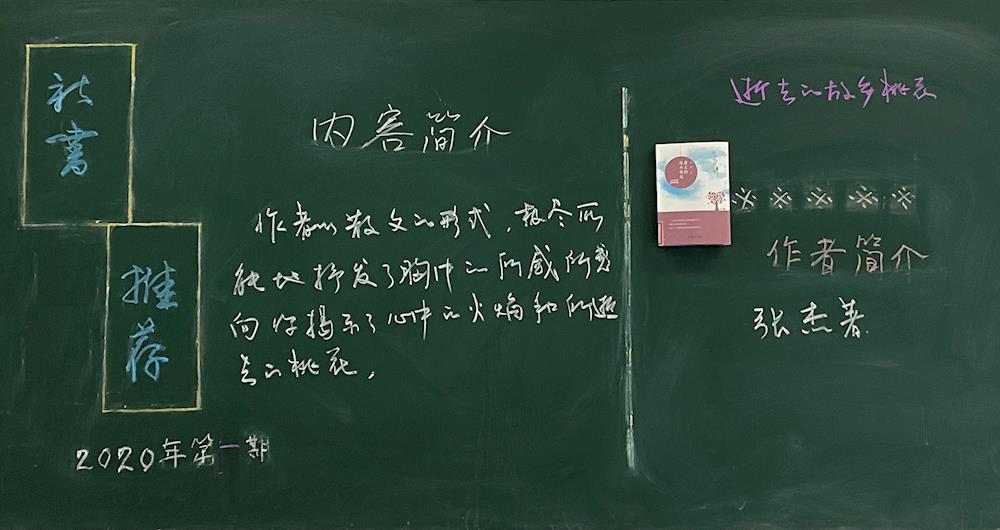 新書
推荐
2020年第一期
内容简介
作者以散文的形式，极尽所
能地抒发了胸中的所感所想
向你揭示了心中的火焰和所逝
去的桃花，
逝去的故乡桃花
※※※※※
作者简介
张杰著